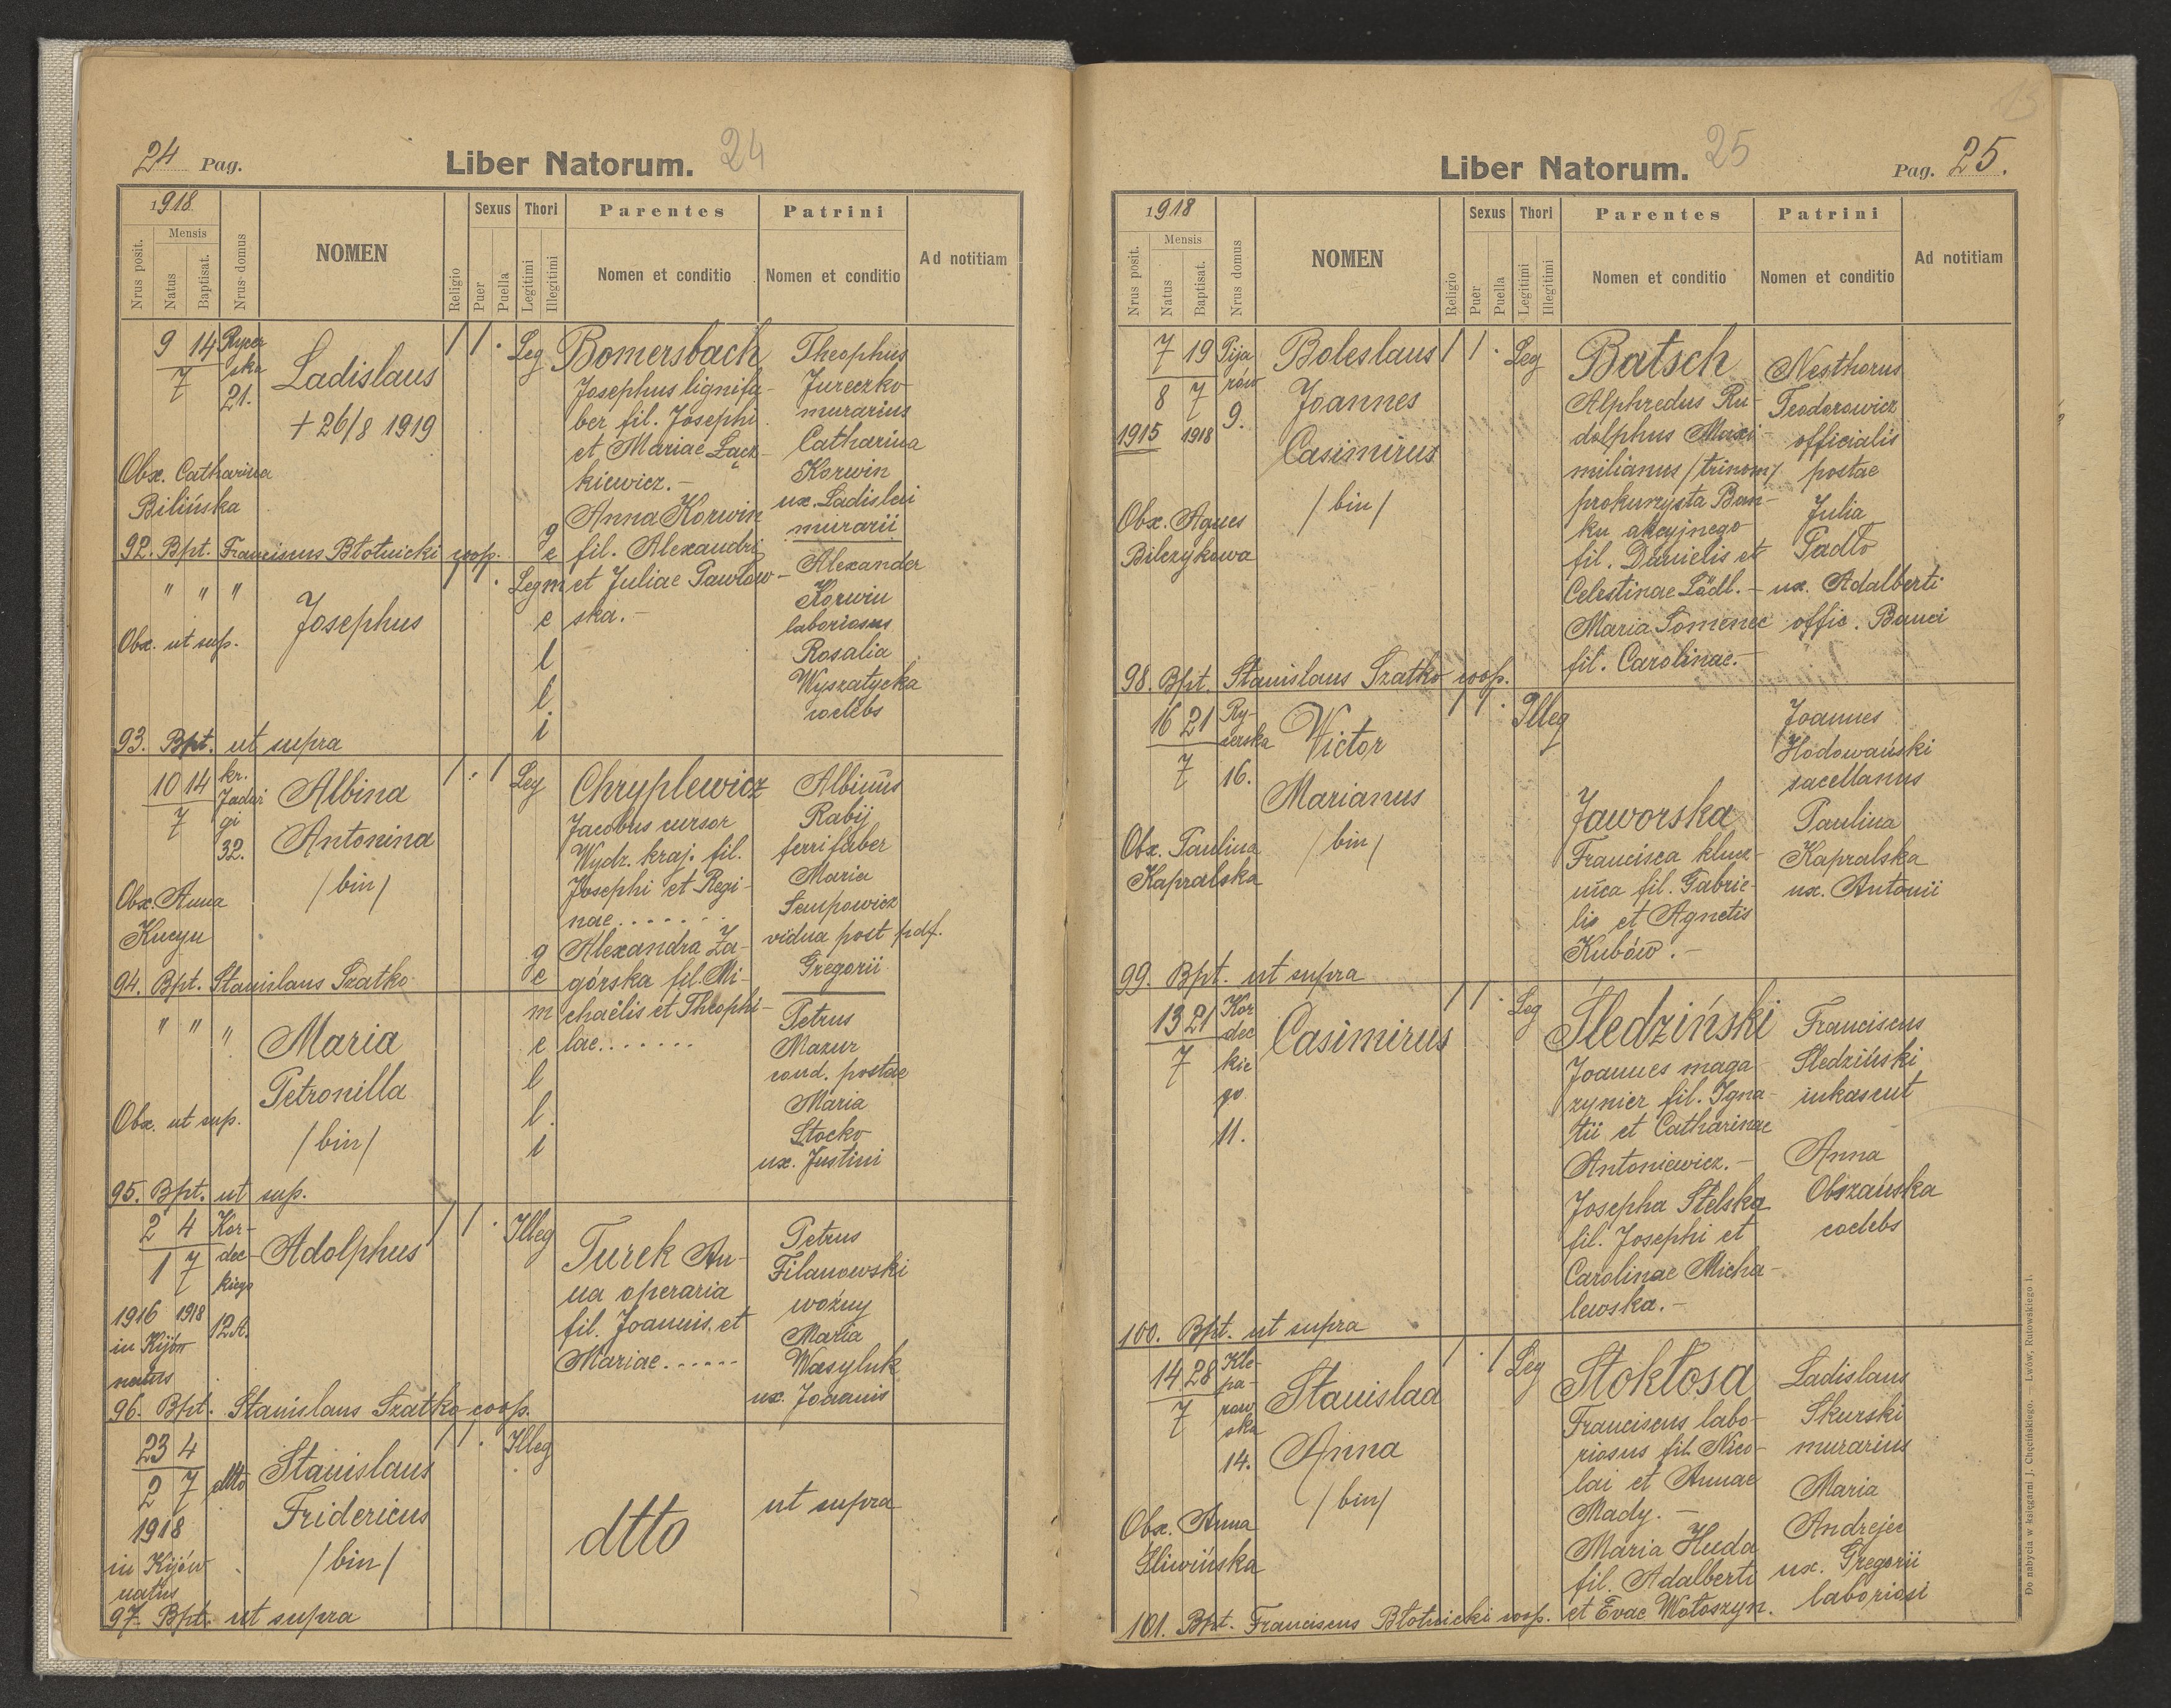 24 Pag.
Liber Natorum. 24
1918
Nrus posit.
Mensis
Natus
Baptisat.
Nrus domus
NOMEN
Religio
Sexus
Puer
Puella
Thori
Legitimi
Illegitimi
Parentes
Nomen et conditio
Patrini
Nomen et conditio
Ad notitiam
9 14
7
Rycer
ska
21.
Ladislaus
+ 26/8 1919
Obx. Catharina
Bilińska
92. Bpt. Franciscus Błotnicki coop.
1 1 .
Leg
Bomersbach
Josephus lignifa-
ber fil. Josephi
et Mariae Łącz-
kiewicz.-
Anna Korwin
fil. Alexandri
et Juliae Pawłow-
ska.-
Theophus
Jureczko
murarius
Catharina
Korwin
ux. Ladislai
murarii
" " "
Josephus
Obx. ut sup.
93. Bpt. ut supra
.
Leg
g
e
m
e
l
l
i
Alexander
Korwin
laboriosus
Rosalia
Wyszatycka
coelebs
10 14
7
kr.
Jadwi
gi
32.
Albina
Antonina
/bin/
Obx. Anna
Kucyn
94. Bpt. Stanislaus Szatko
1 . 1
Leg
Chryplewicz
Jacobus cursor
Wydz. kraj. fil.
Josephi et Regi-
nae.......
Alexandra Za-
górska fil. Mi
chaëlis et Theophi-
lae.......
Albinus
Rabij
ferrifaber
Maria
Sempowicz
vidua post pdf.
Gregorii
" " "
Maria
Petronilla
/bin/
Obx. ut sup.
95. Bpt. ut sup.
g
e
m
e
l
l
i
Petrus
Mazur
cond. postae
Maria
Stocko
ux. Justini
2 4
1 7
1916 1918
in Kijów
natus
Kor-
dec-
kiego
12A.
Adolphus
96. Bpt. Stanislaus Szatko coop.
1 1 .
Illeg
Turek An-
na operaria
fil. Joannis et
Mariae......
Petrus
Filanowski
woźny
Maria
Wasyluk
ux. Joannis
23 4
2 7
1918
in Kijów
natus
dtto
Stanislaus
Fridericus
/bin/
97. Bpt. ut supra
1 1 .
Illeg
dtto
ut supra
Liber Natorum. 25
Pag. 25.
1918
Nrus posit.
Mensis
Natus
Baptisat.
Nrus domus
NOMEN
Religio
Sexus
Puer
Puella
Thori
Legitimi
Illegitimi
Parentes
Nomen et conditio
Patrini
Nomen et conditio
Ad notitiam
7 19
8 7
1915 1918
Pija
rów
9.
Boleslaus
Joannes
Casimirus
/bin/
Obx. Agnes
Bilczykowa
98. Bpt. Stanislaus Szatko coop.
1 1 .
Leg
Batsch
Alphredus Ru-
dolphus Maxi-
milianus /trinom/
prokurzysta Ban-
ku akcyjnego
fil. Danielis et
Celestinae Lädl.-
Maria Somenec
fil. Carolinae.-
Nesthorus
Teodorowicz
officialis
postae
Julia
Sadło
ux. Adalberti
offic. Banci
16 21
7
Ry-
cerska
16.
Victor
Marianus
/bin/
Obx. Paulina
Kapralska
99. Bpt. ut supra
1 1 .
Illeg
Jaworska
Francisca klucz-
nica fil. Gabrie-
lis et Agnetis
Kubów.-
Joannes
Hodowański
sacellanus
Paulina
Kapralska
ux. Antonii
13 21
7
Kor
dec
kie
go
11.
Casimirus
100. Bpt. ut supra
1 1 .
Leg
Śledziński
Joannes maga
zynier fil. Igna-
tii et Catharinae
Antoniewicz.-
Josepha Stelska
fil. Josephi et
Carolinae Micha-
lewska.-
Franciscus
Śledziński
inkasent
Anna
Obszańska
coelebs
14 28
7
Kle-
pa-
row
ska
14.
Stanislaa
Anna
/bin/
Obx. Anna
Śliwińska
101. Bpt. Franciscus Błotnicki coop.
1 . 1
Leg
Stokłosa
Franciscus labo-
riosus fil. Nico-
lai et Annae
Mady.-
Maria Huda
fil. Adalberti
et Evae Wołoszyn.
Ladislaus
Skurski
murarius
Maria
Andrejec
ux. Gregorii
laboriosi
Do nabycia w księgarni J. Chęcińskiego. — Lwów, Rutowskiego 1.